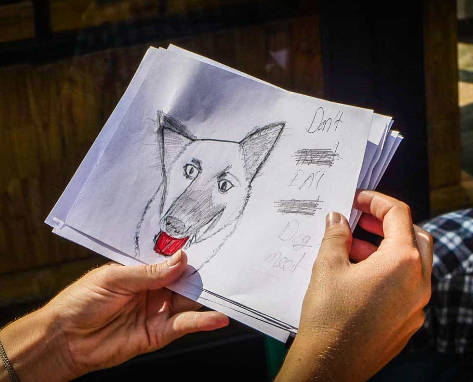 Don't
EAT
Dog
meet